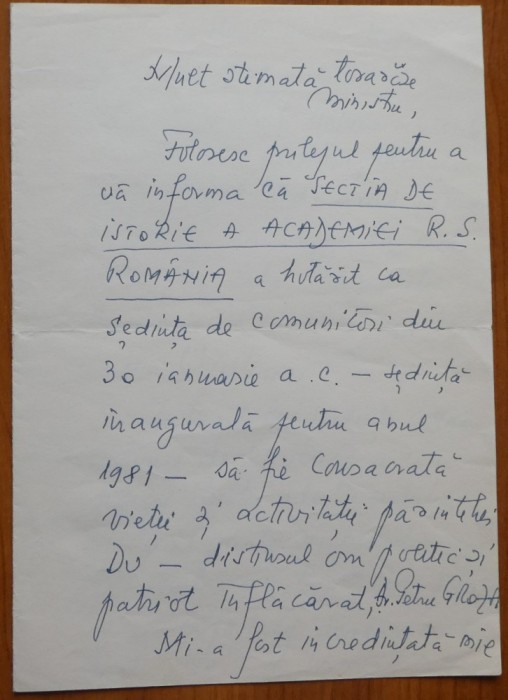 Mult stimată tovarășe
Ministru,
Folosesc prilejul pentru a
vă informa că SECȚIA DE
ISTORIE A ACADEMIEI R. S.
ROMÂNIA a hotărît ca
ședința de comunicări din
30 ianuarie a.c. – ședință
inaugurală pentru anul
1981 – să fie consacrată
vieții și activității părintelui
Dv – distinsul om politic și
patriot înflăcărat, Dr. Petru GROZA
Mi-a fost încredințată mie